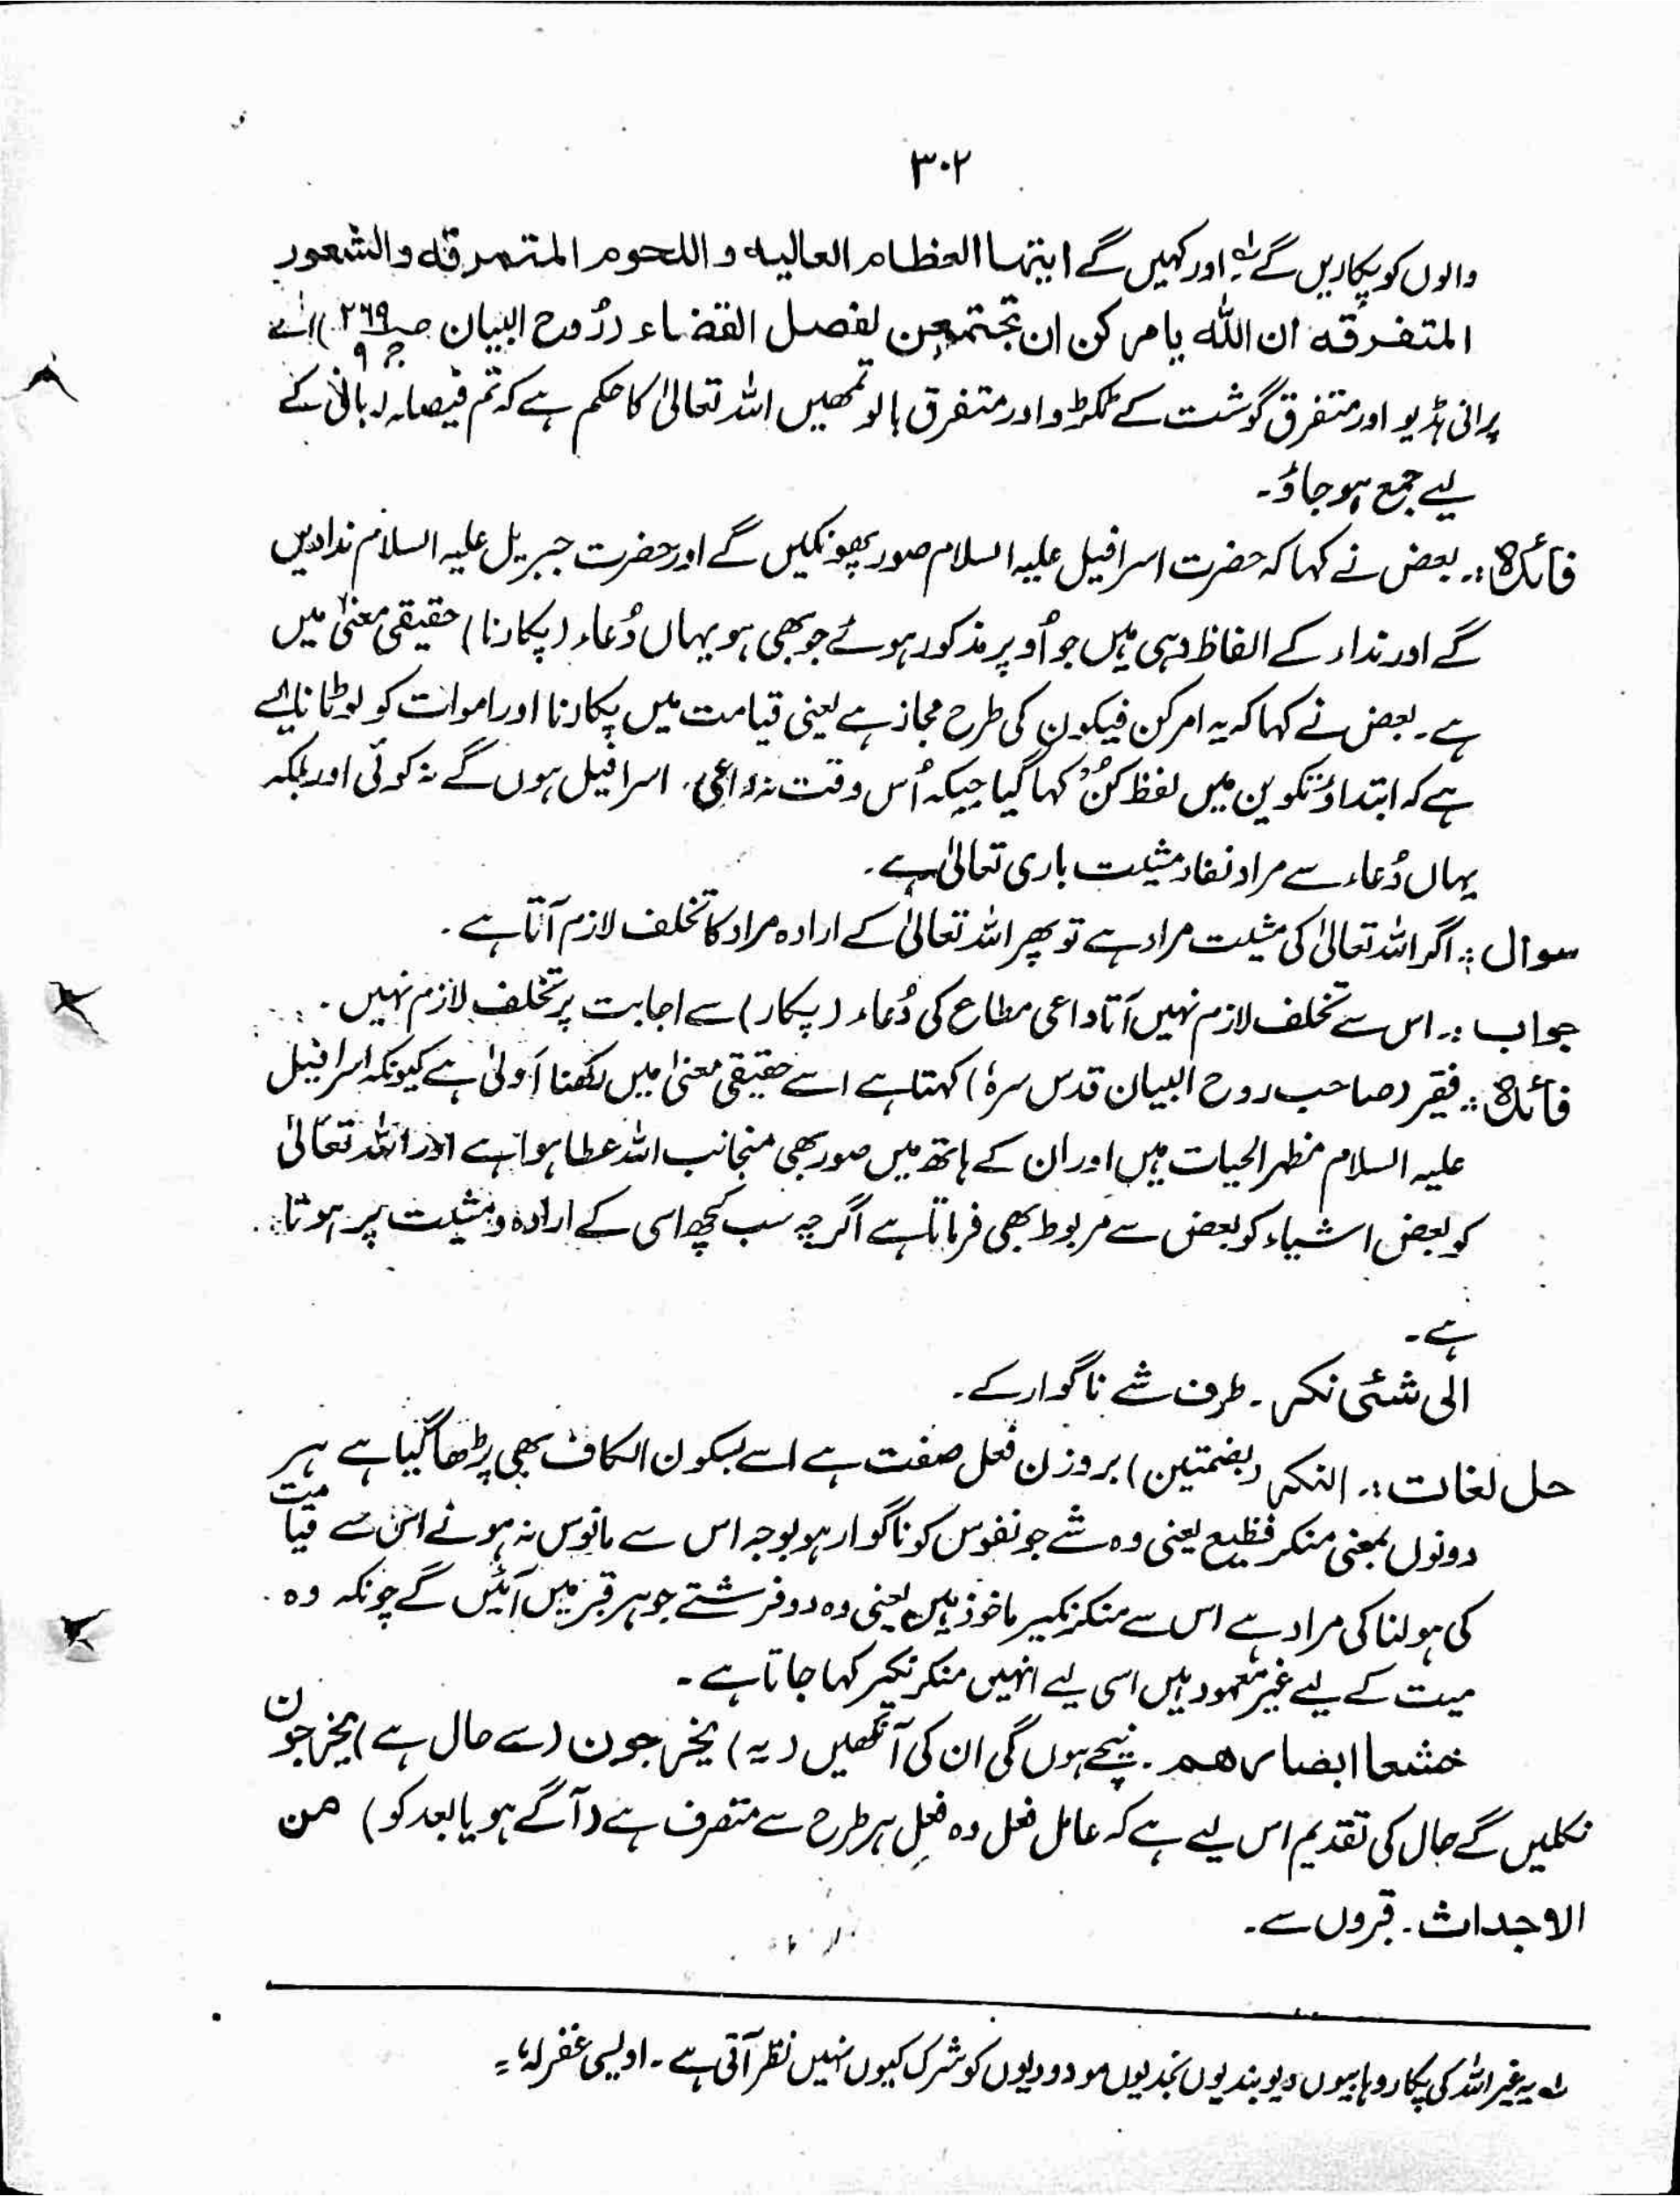 ۳۰۲
والوں کو پکاریں گے لہ اور کہیں گے ایتہا العظام العالیہ و اللحوم المتمرقہ والشعور
المتفرقہ ان اللہ یامر کن ان تجتمعن لفصل القضاء (رُوح البیان صـ ۲۶۹ ج ۹) اے
پرانی ہڈیو اور متفرق گوشت کے ٹکڑو اور متفرق بالو تمھیں اللہ تعالیٰ کا حکم ہے کہ تم فیصلہ ربانی کے
لیے جمع ہو جاؤ۔
فائدہ :۔ بعض نے کہا کہ حضرت اسرافیل علیہ السلام صور پھونکیں گے اور حضرت جبریل علیہ السلام ندا دیں
گے اور نداء کے الفاظ وہی ہیں جو اُوپر مذکور ہوئے جو بھی ہو یہاں دُعاء (پکارنا) حقیقی معنیٰ میں
ہے۔ بعض نے کہا کہ یہ امر کن فیکون کی طرح مجاز ہے یعنی قیامت میں پکارنا اور اموات کو لوٹانا ایسے
ہے کہ ابتداء تکوین میں لفظ کُنْ کہا گیا جبکہ اُس وقت نہ داعی، اسرافیل ہوں گے نہ کوئی اور بلکہ
یہاں دُعاء سے مراد نفاذ مشیت باری تعالیٰ ہے۔
سوال :۔ اگر اللہ تعالیٰ کی مشیت مراد ہے تو پھر اللہ تعالیٰ کے ارادہ مراد کا تخلف لازم آتا ہے۔
جواب :۔ اس سے تخلف لازم نہیں آتا داعی مطاع کی دُعاء (پکار) سے اجابت پر تخلف لازم نہیں۔
فائدہ :۔ فقیر (صاحب روح البیان قدس سرہٗ) کہتا ہے اسے حقیقی معنیٰ میں رکھنا اَولیٰ ہے کیونکہ اسرافیل
علیہ السلام مظہر الحیات ہیں اور ان کے ہاتھ میں صور بھی منجانب اللہ عطا ہوا ہے اور اللہ تعالیٰ
کو بعض اشیاء کو بعض سے مربوط بھی فرماتا ہے اگرچہ سب کچھ اسی کے ارادہ و مشیت پر ہوتا
ہے۔
الی شئی نکر۔ طرف شے ناگوار کے۔
حل لغات :۔ النکر (بضمتین) بروزن فعل صفت ہے اسے بسکون الکاف بھی پڑھا گیا ہے ہر
دونوں بمعنی منکر فظیع یعنی وہ شے جو نفوس کو ناگوار ہو بوجہ اس سے مانوس نہ ہونے اس سے قیامت
کی ہولناکی مراد ہے اس سے منکر نکیر ماخوذ ہیں یعنی وہ دو فرشتے جو ہر قبر میں آئیں گے چونکہ وہ
میت کے لیے غیر معہود ہیں اسی لیے انہیں منکر نکیر کہا جاتا ہے۔
خشعا ابصارھم۔ نیچے ہوں گی ان کی آنکھیں (یہ) یخرجون (سے حال ہے) یخرجون
نکلیں گے حال کی تقدیم اس لیے ہے کہ عامل فعل وہ فعل ہر طرح سے متصرف ہے (آگے ہو یا بعد کو) من
الاجداث۔ قبروں سے۔
لہ یہ غیر اللہ کی پکار وہابیوں دیوبندیوں نجدیوں مودودیوں کو شرک کیوں نہیں نظر آتی ہے۔ اویسی غفرلہٗ